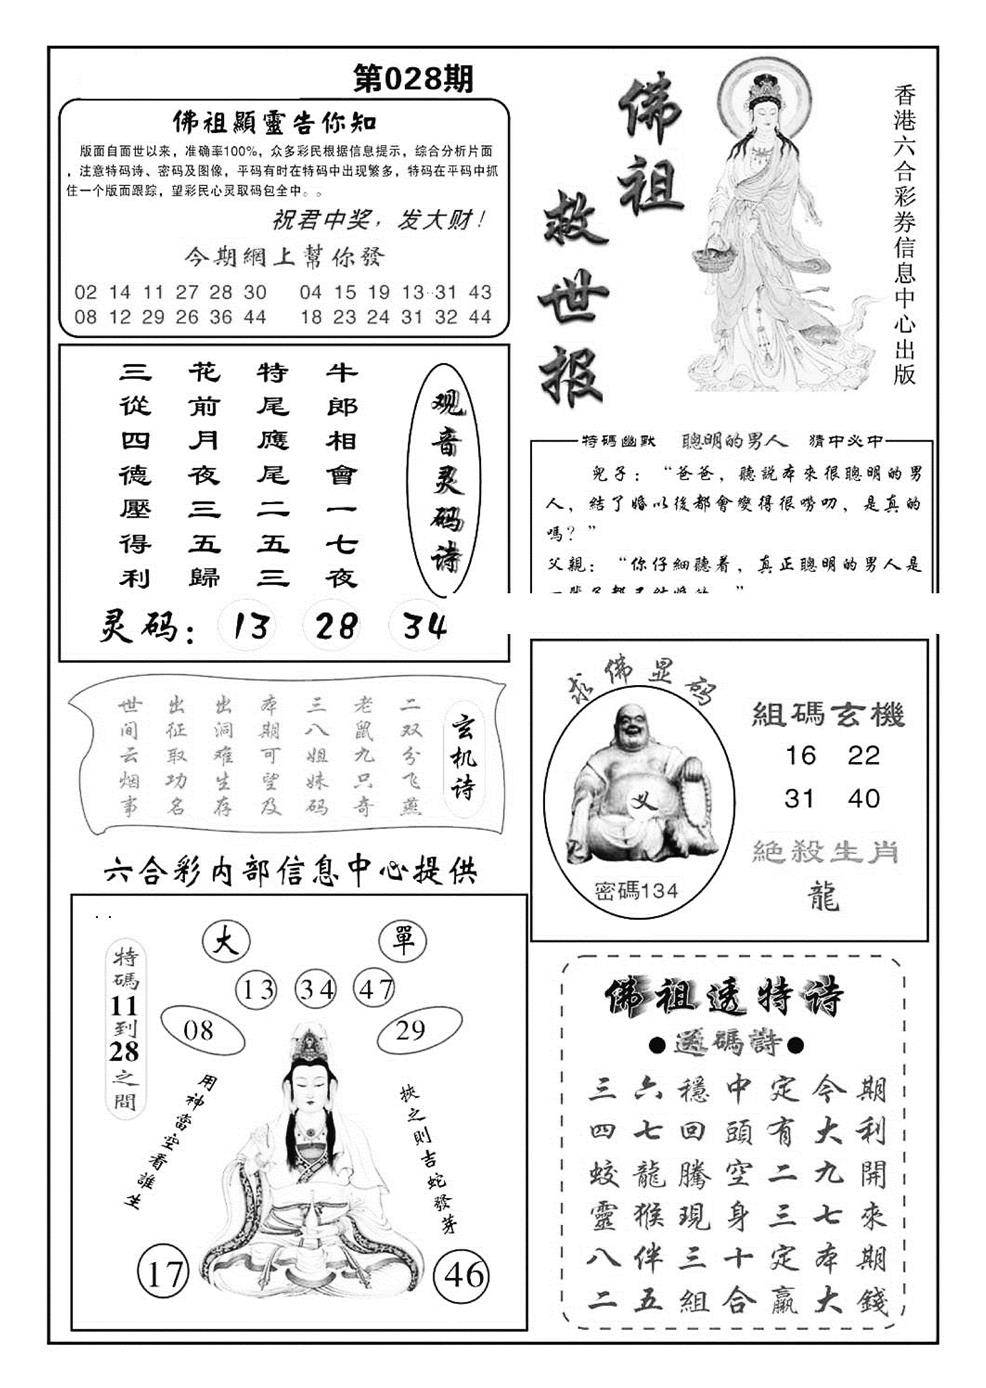 第028期
佛祖顯靈告你知
版面自面世以来，准确率100%，众多彩民根据信息提示，综合分析片面
，注意特码诗、密码及图像，平码有时在特码中出现繁多，特码在平码中抓
住一个版面跟踪，望彩民心灵取码包全中。。
祝君中奖，发大财！
今期網上幫你發
02 14 11 27 28 30 04 15 19 13 31 43
08 12 29 26 36 44 18 23 24 31 32 44
佛祖
救世报
香港六合彩券信息中心出版
观音灵码诗
牛郎相會一七夜
特尾應尾二五三
花前月夜三五歸
三從四德壓得利
灵码：13 28 34
特碼幽默 聰明的男人 猜中必中
兒子：“爸爸，聽說本來很聰明的男
人，結了婚以後都會變得很嘮叨，是真的
嗎？”
父親：“你仔細聽着，真正聰明的男人是
玄机诗
二双分飞燕
老鼠九只奇
三八姐妹码
本期可望及
出洞难生存
出征取功名
世间云烟事
六合彩内部信息中心提供
求佛显码
义
密碼134
組碼玄機
16 22
31 40
絕殺生肖
龍
特碼11到28之間
大 單
13 34 47
08 29
用神當空看誰生
挾之則吉蛇發芽
17 46
佛祖透特诗
●透碼詩●
三六穩中定今期
四七回頭有大利
蛟龍騰空二九開
靈猴現身三七來
八伴三十定本期
二五組合贏大錢